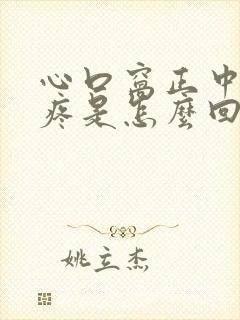 心口窝正中
疼是怎麼回
姚立杰